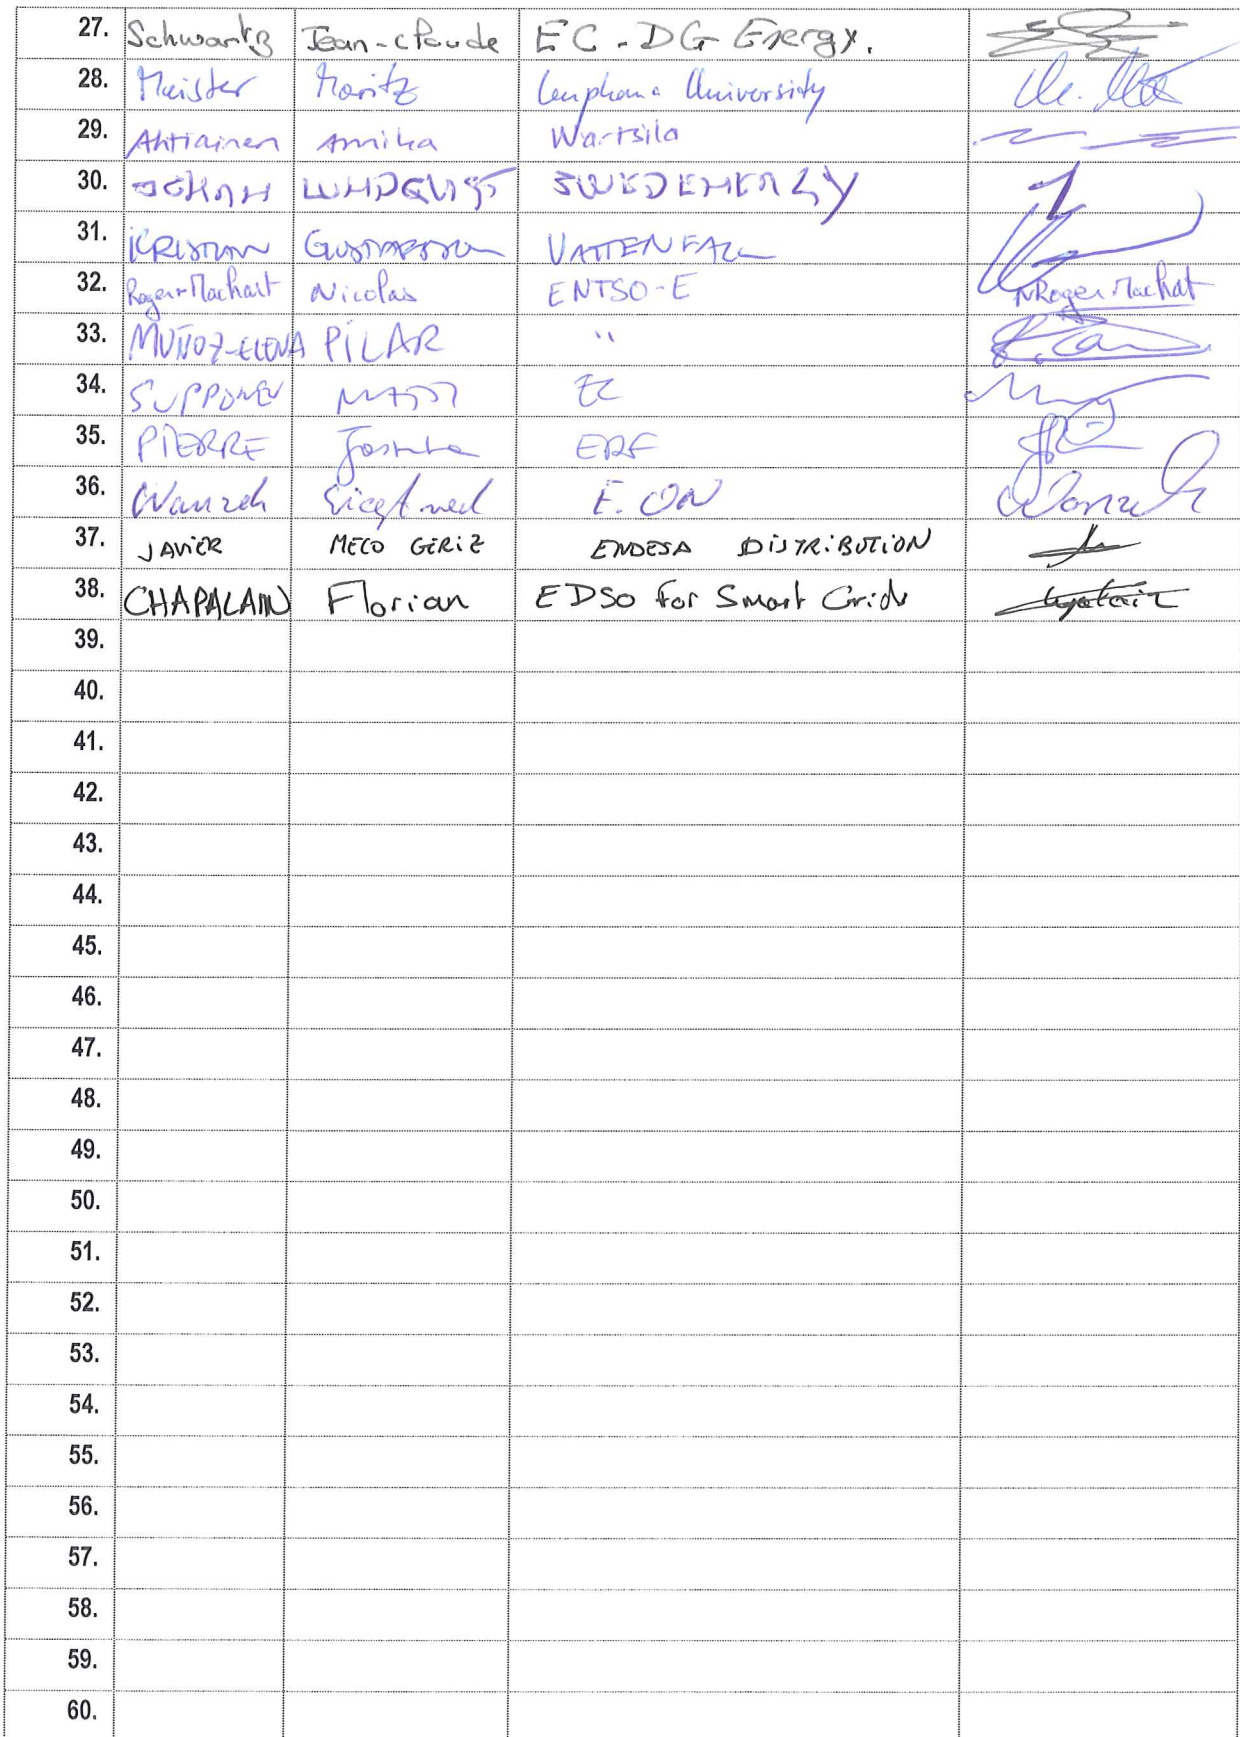 27. Schwartz Jean-Claude EC - DG Energy.
28. Meister Moritz Leuphana University
29. Ahtiainen Annika Wartsila
30. JOHAN LUNDQVIST SWEDENERGY
31. KRISTIAN GUSTAFSSON VATTENFALL
32. Roger-Machart Nicolas ENTSO-E NRoger-Machart
33. MUÑOZ-ELENA PILAR "
34. SUPPONEN MATTI EC
35. PIERRE ERF
36. Wanzek E.ON Wanzek
37. JAVIER MECO GERIZ ENDESA DISTRIBUTION
38. CHAPALAIN Florian EDSO for Smart Grids
39.
40.
41.
42.
43.
44.
45.
46.
47.
48.
49.
50.
51.
52.
53.
54.
55.
56.
57.
58.
59.
60.